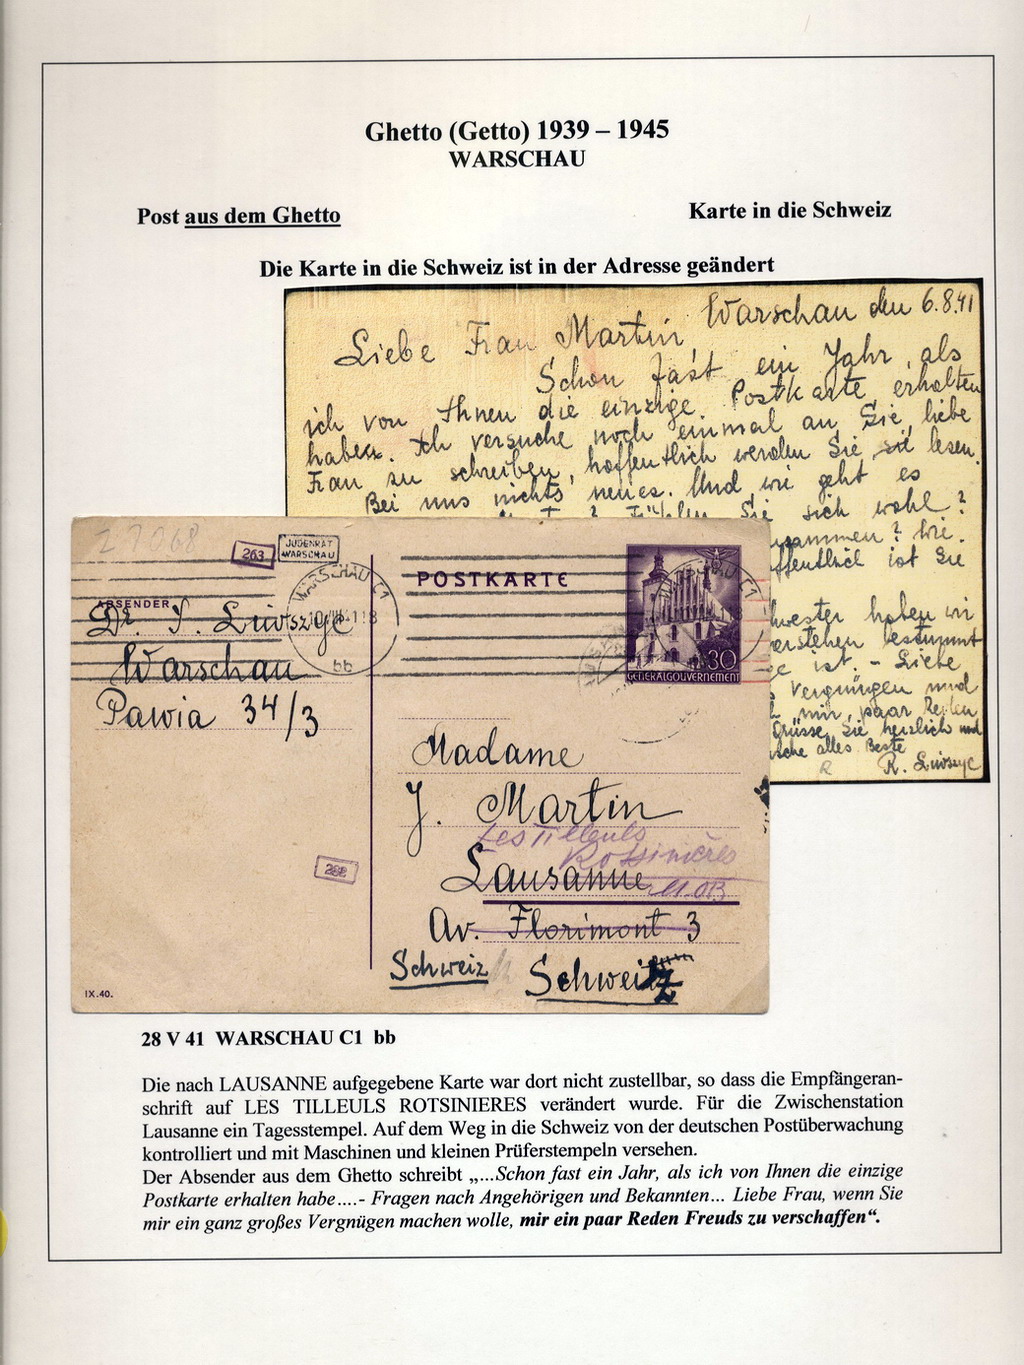 Ghetto (Getto) 1939 – 1945
WARSCHAU
Post aus dem Ghetto
Karte in die Schweiz
Die Karte in die Schweiz ist in der Adresse geändert
Warschau den 6.8.41
Liebe Frau Martin
Schon fast ein Jahr, als
ich von Ihnen die einzige Postkarte erhalten
haben. Ich versuche noch einmal an Sie, liebe
Frau zu schreiben, hoffentlich werden Sie sie lesen.
Bei uns nichts neues. Und wie geht es
Fühlen Sie sich wohl?
zusammen? Wie
hoffentlich ist Sie
Schwester haben wir
verstehen bestimmt
ist. - Liebe
Vergnügen und
mir, paar Reden
Grüsse Sie herzlich und
alles Beste
R. Liwszyc
27068
263
JUDENRAT
WARSCHAU
POSTKARTE
WARSCHAU C1
bb
30
GENERALGOUVERNEMENT
ABSENDER
Dr. Liwszyc
Warschau
Pawia 34/3
Madame
J. Martin
Les Tilleuls
Rossinières
Lausanne M.OB
Av. Florimont 3
Schweiz
Schweiz
282
IX.40.
28 V 41 WARSCHAU C1 bb
Die nach LAUSANNE aufgegebene Karte war dort nicht zustellbar, so dass die Empfängeran-
schrift auf LES TILLEULS ROTSINIERES verändert wurde. Für die Zwischenstation
Lausanne ein Tagesstempel. Auf dem Weg in die Schweiz von der deutschen Postüberwachung
kontrolliert und mit Maschinen und kleinen Prüferstempeln versehen.
Der Absender aus dem Ghetto schreibt „...Schon fast ein Jahr, als ich von Ihnen die einzige
Postkarte erhalten habe....- Fragen nach Angehörigen und Bekannten... Liebe Frau, wenn Sie
mir ein ganz großes Vergnügen machen wolle, mir ein paar Reden Freuds zu verschaffen“.